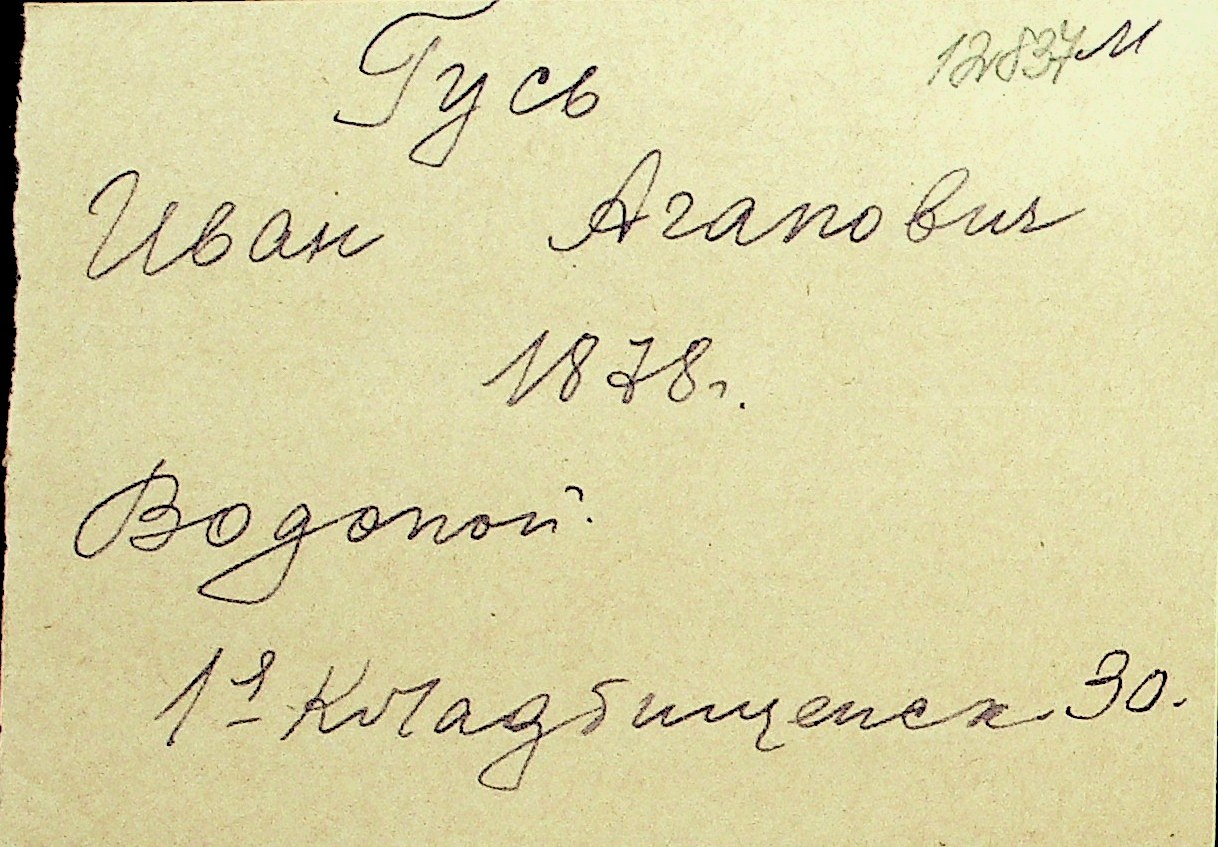 12837 м
Гусь
Иван Агапович
1878 г.
Водопой.
1я Кладбищенск. 30.